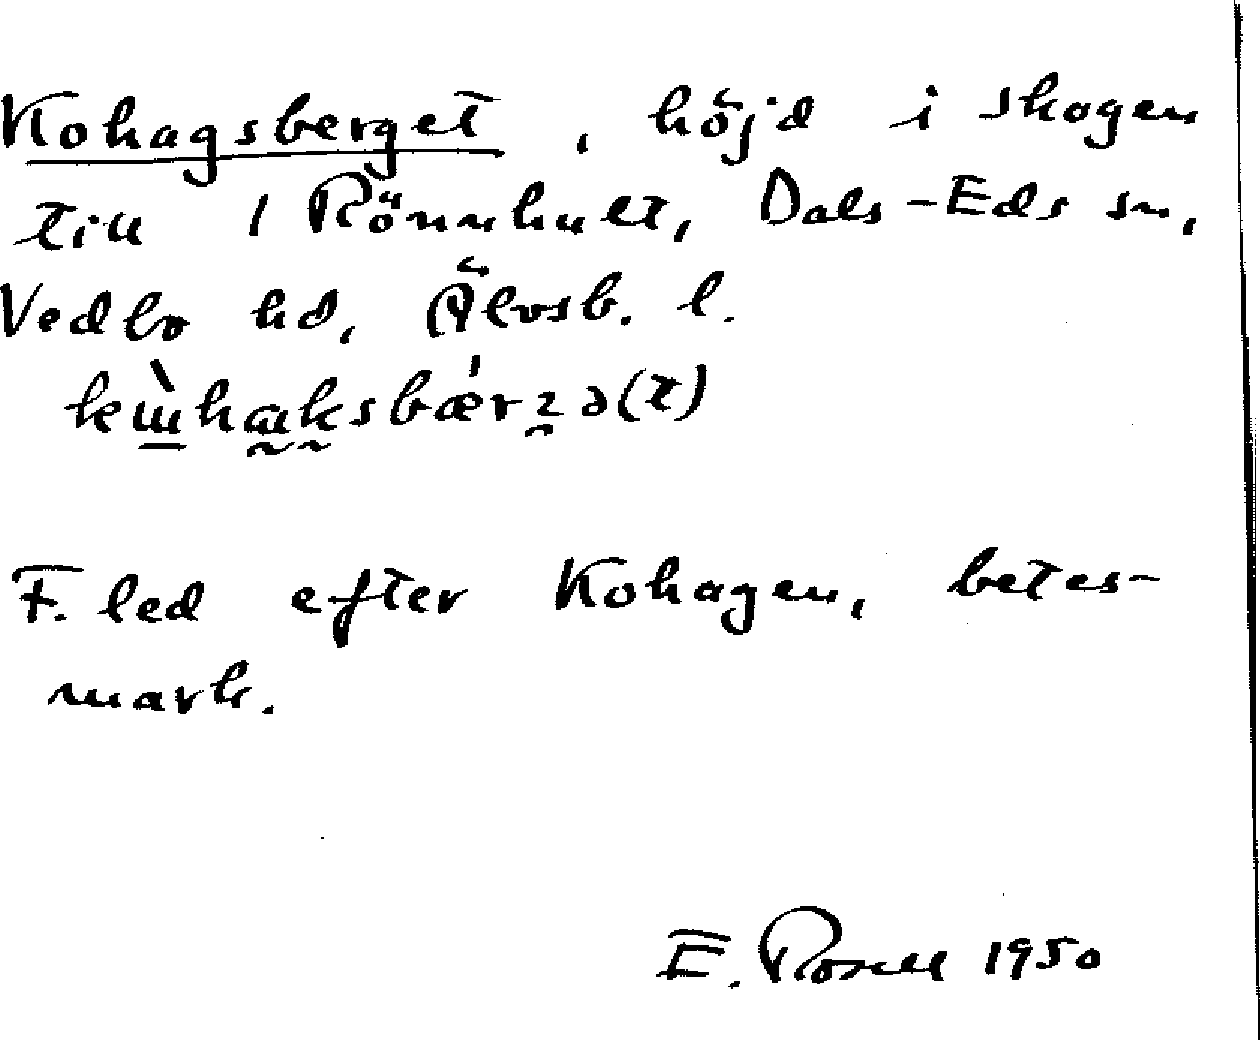 Kohagsberget, höjd i skogen
till 1 Rönnhult, Dals-Eds sn,
Vedbo hd, Älvsb. l.
kɯ̀hɑksbǽrzə(t)
F. led efter Kohagen, betes-
mark.
E. Rosell 1950